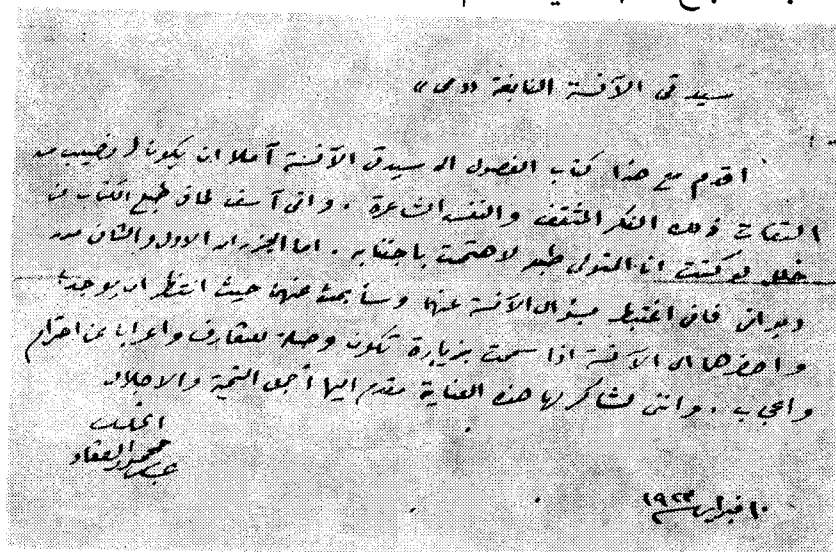 سيدتي الآنسة النابغة «مي»
أقدم مع هذا كتاب الفصول الى سيدتي الآنسة آملا ان يكون له نصيب من
التفات ذلك الفكر المثقف والنفس الشاعرة . واني آسف لما في طبع الكتاب من
خلل لو كنت انا المتولي طبعه لاهتممت باجتنابه . اما الجزءان الاول والثاني من
ديواني فاني اغتبط بسؤال الآنسة عنهما وسأبحث عنهما حيث انتظر ان يوجدا
واحضرهما الى الآنسة اذا سمحت بزيارة تكون وصلة للتعارف واعرابا عن احترام
واعجاب . وانني لشاكر لها هذه العناية مقدم اليها أجمل التحية والاجلال
المخلص
عباس محمود العقاد
١٠ فبراير ١٩٢٣